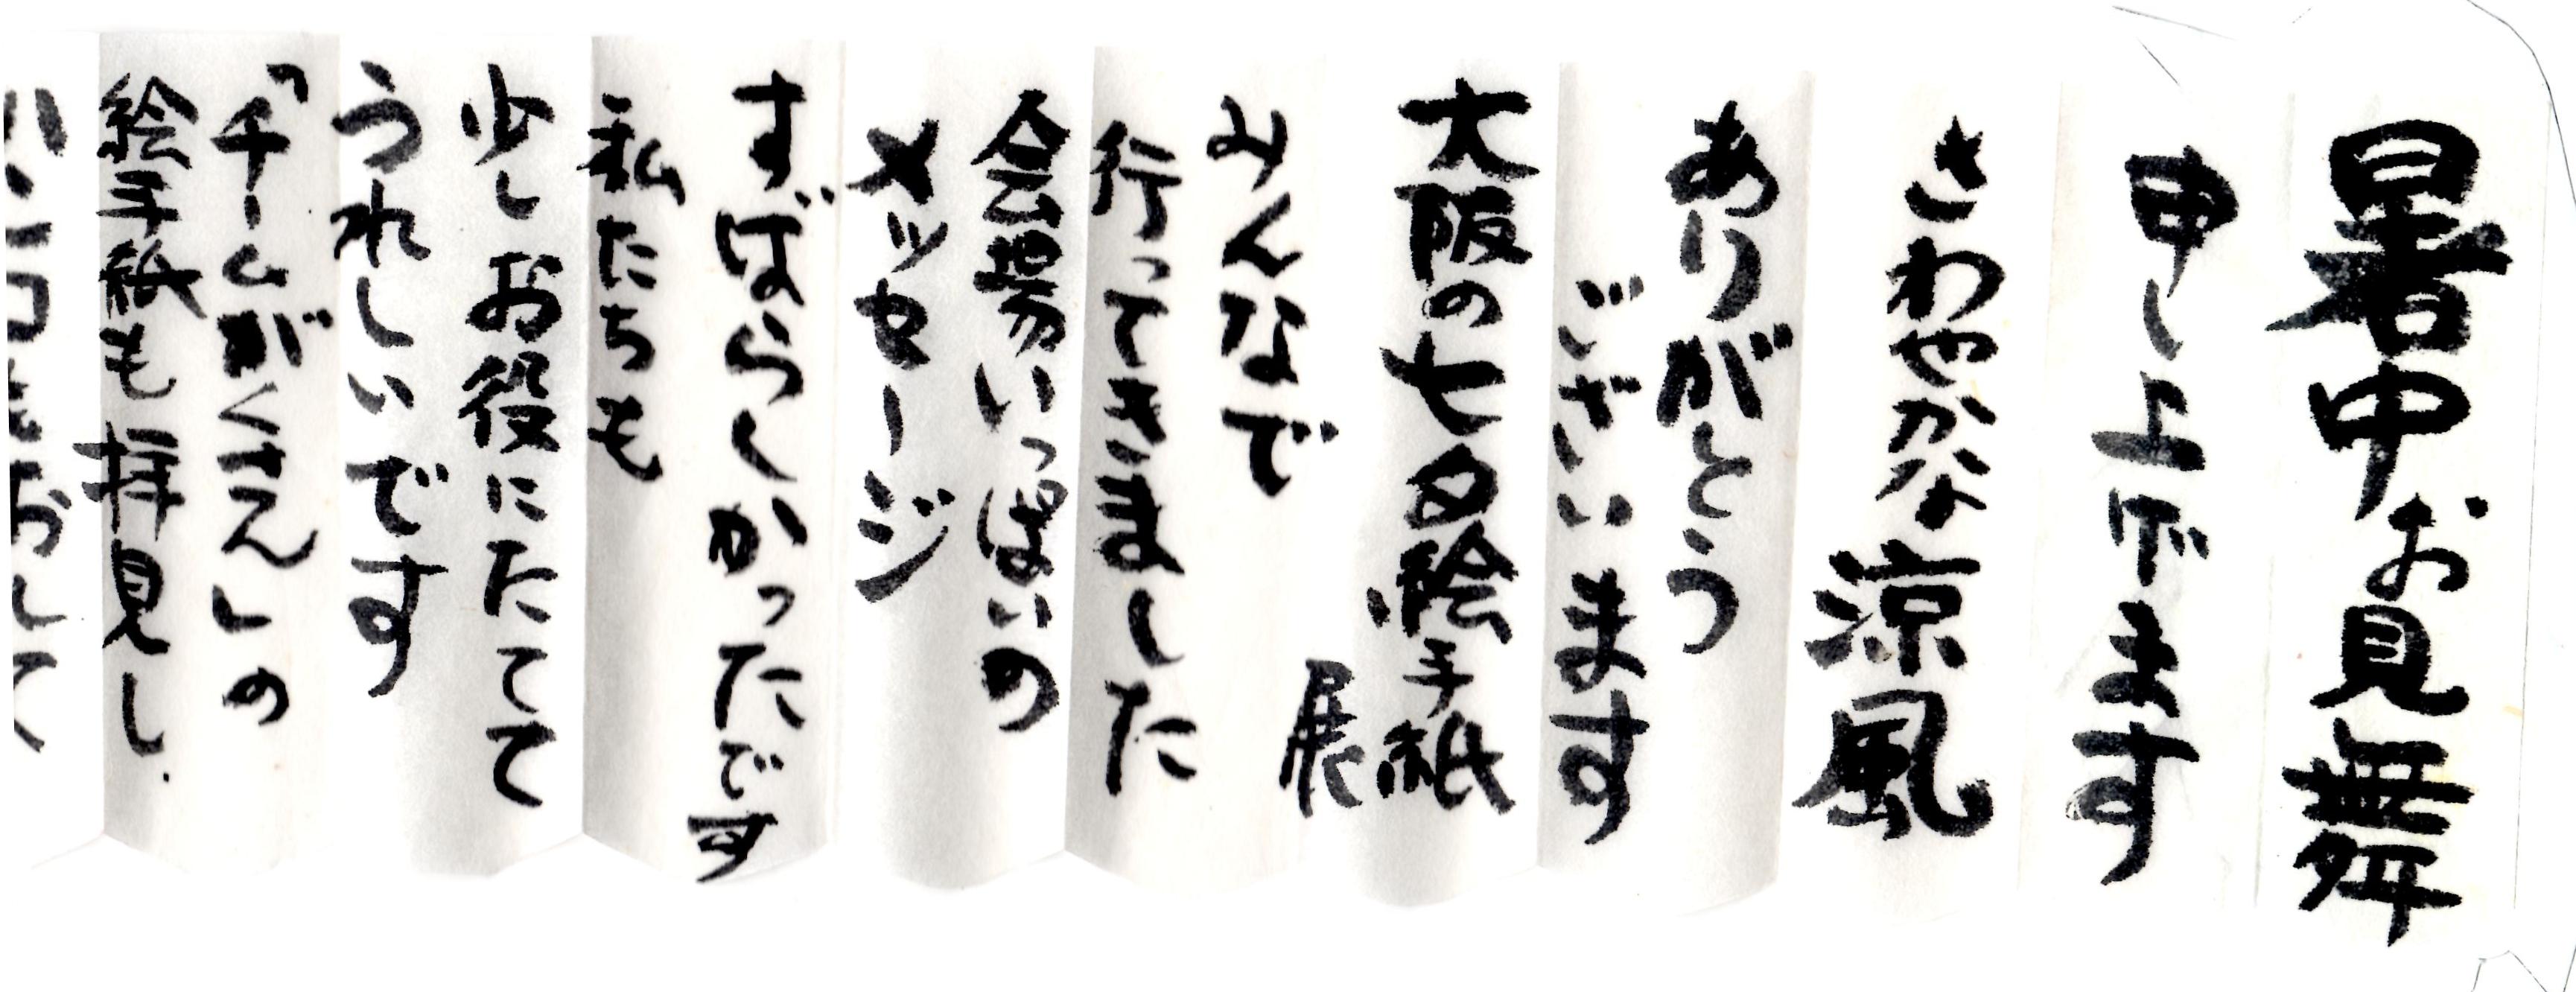 暑中お見舞
申し上げます
さわやかな涼風
ありがとう
ございます
大阪の七夕絵手紙
展
みんなで
行ってきました
会場いっぱいの
メッセージ
すばらしかったです
私たちも
少しお役にたてて
うれしいです
「チームがくさん」の
絵手紙も拝見し